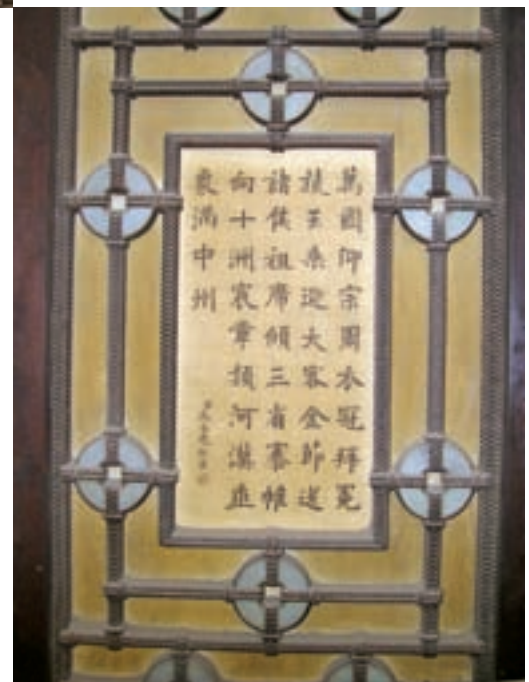 萬國仰宗周衣冠拜冕
旒玉乘迎大客金節送
諸侯祖席傾三省褰帷
向十洲宸章類河漢垂
象滿中州